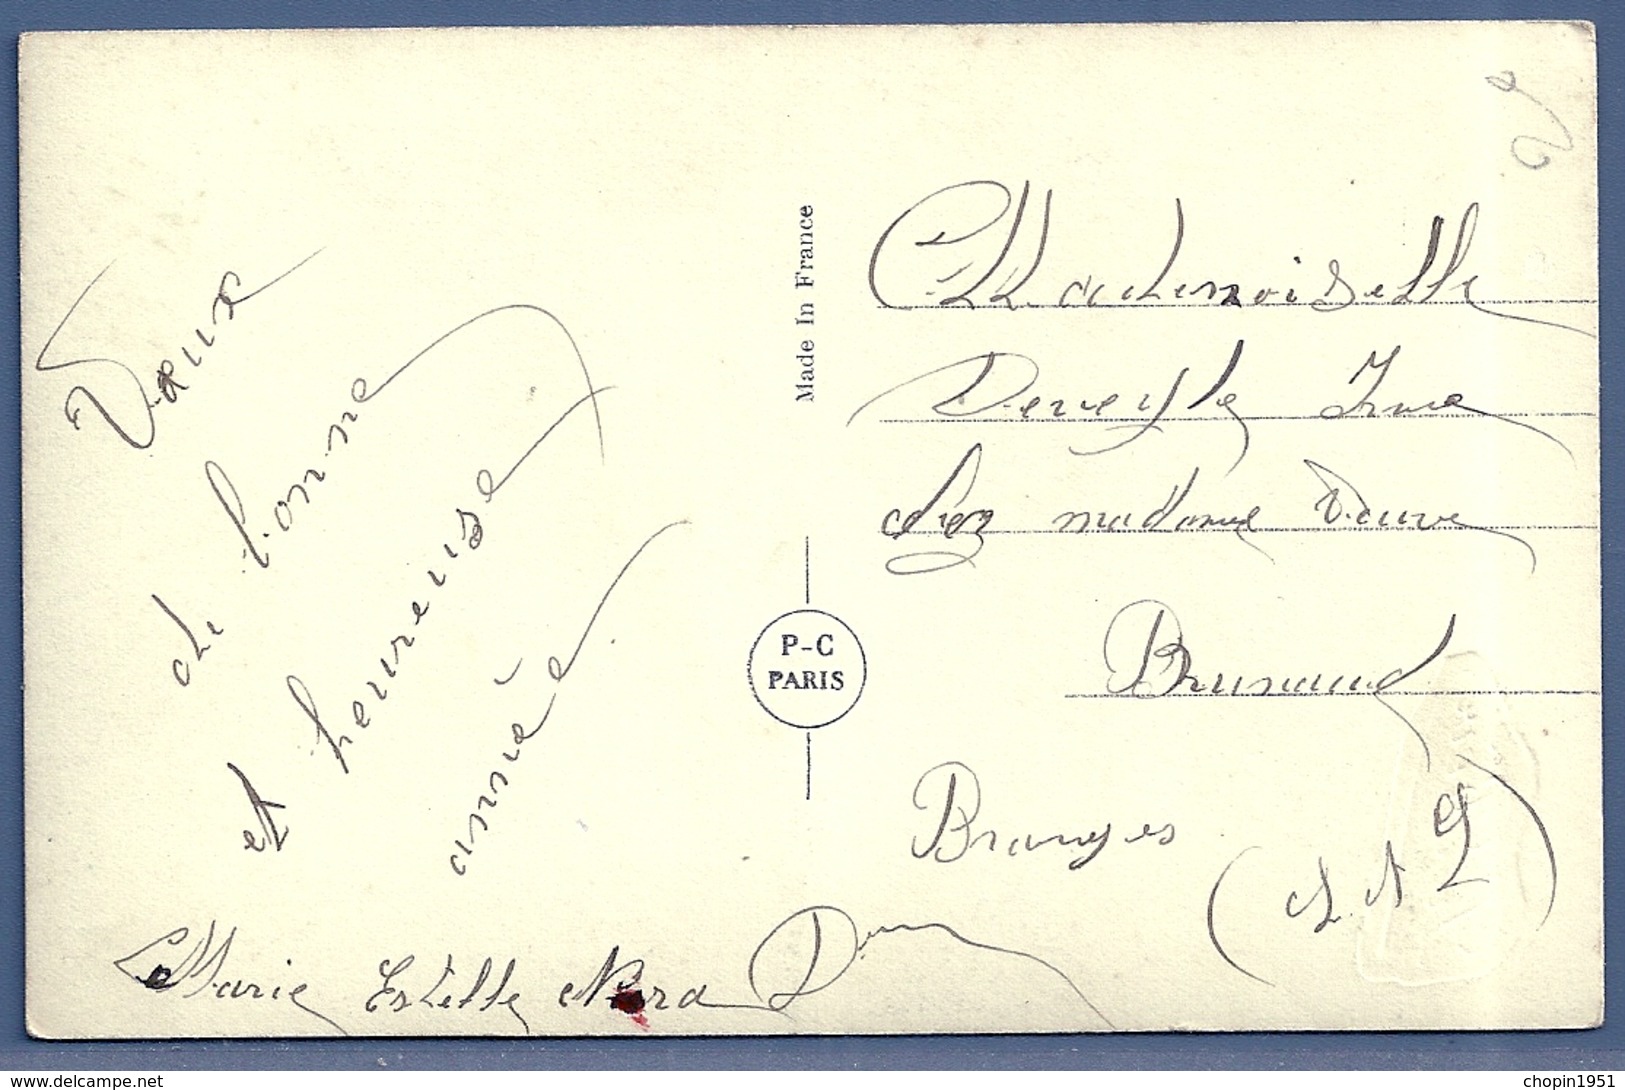 Vœux
de bonne
et heureuse
année
Marie Estelle Nora D
Made In France
P-C
PARIS
Mademoiselle
Irma
chez madame Veuve
Brunaud
Branges
(S. et L)
chopin1951